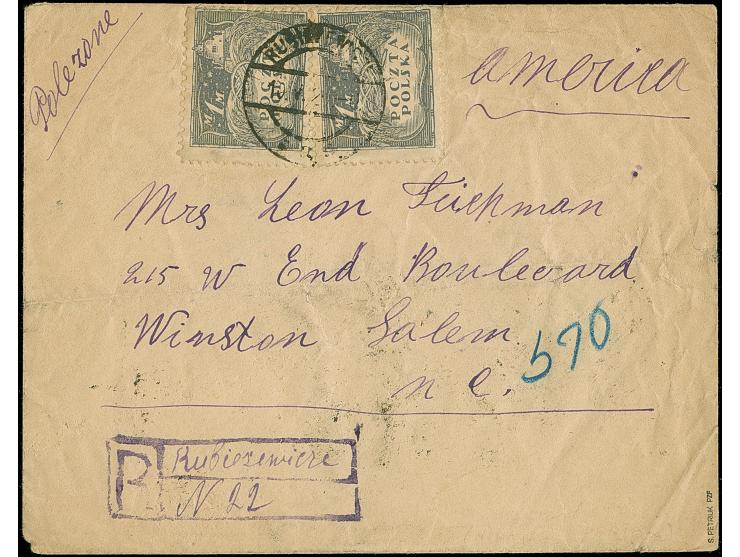 Polezone
America
POCZTA
POLSKA
1 M
1 M
POCZTA
POLSKA
1 M
1 M
Mrs Leon
215 W End Boulevard
Winston Salem
N C.
570
R
Rubiezewicze
N 22
S. PETRIUK PZF